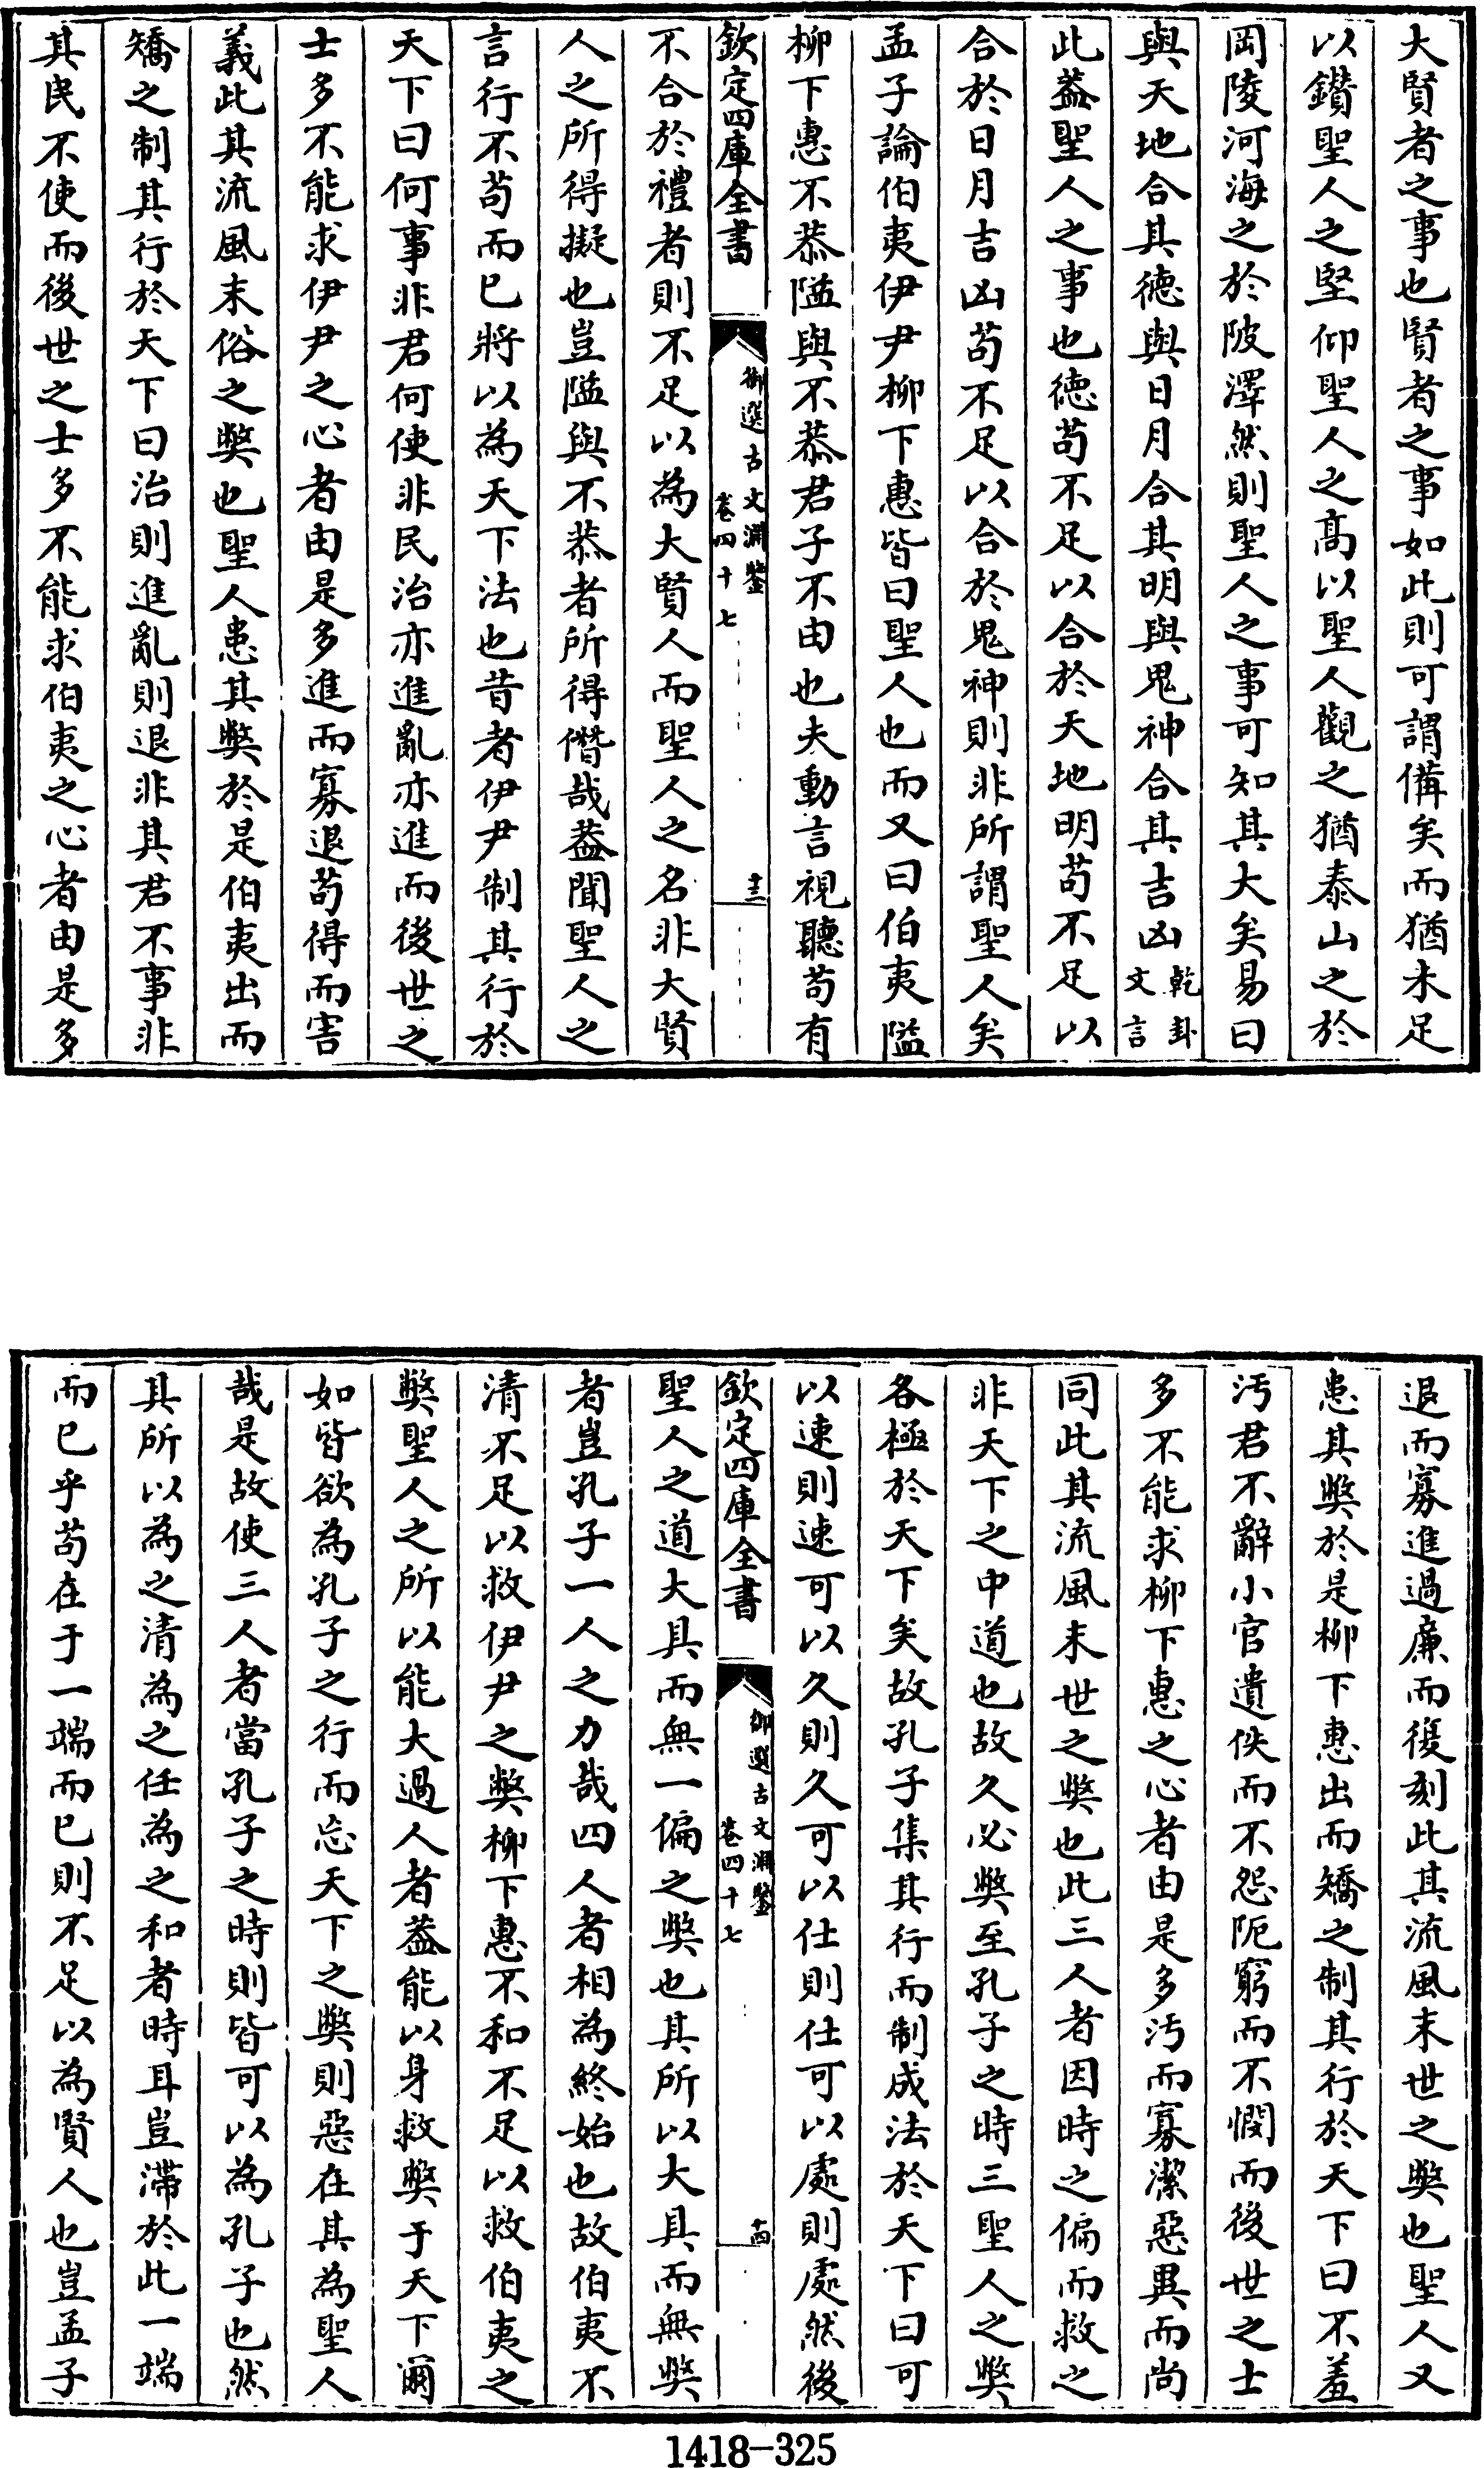 大賢者之事也賢者之事如此則可謂備矣而猶未足
以鑽聖人之堅仰聖人之髙以聖人觀之猶泰山之於
岡陵河海之於陂澤然則聖人之事可知其大矣易曰
與天地合其徳與日月合其明與鬼神合其吉凶乾卦文言
此葢聖人之事也徳苟不足以合於天地明苟不足以
合於日月吉凶苟不足以合於鬼神則非所謂聖人矣
孟子論伯夷伊尹柳下惠皆曰聖人也而又曰伯夷隘
柳下惠不恭隘與不恭君子不由也夫動言視聽苟有
欽定四庫全書 御選古文淵鑒 卷四十七 十三
不合於禮者則不足以為大賢人而聖人之名非大賢
人之所得擬也豈隘與不恭者所得僭哉葢聞聖人之
言行不苟而已將以為天下法也昔者伊尹制其行於
天下曰何事非君何使非民治亦進亂亦進而後世之
士多不能求伊尹之心者由是多進而寡退苟得而害
義此其流風末俗之弊也聖人患其弊於是伯夷出而
矯之制其行於天下曰治則進亂則退非其君不事非
其民不使而後世之士多不能求伯夷之心者由是多
退而寡進過廉而復刻此其流風末世之弊也聖人又
患其弊於是柳下惠出而矯之制其行於天下曰不羞
汚君不辭小官遺佚而不怨阨窮而不憫而後世之士
多不能求柳下惠之心者由是多汚而寡潔惡異而尚
同此其流風末世之弊也此三人者因時之偏而救之
非天下之中道也故久必弊至孔子之時三聖人之弊
各極於天下矣故孔子集其行而制成法於天下曰可
以速則速可以久則久可以仕則仕可以處則處然後
欽定四庫全書 御選古文淵鑒 卷四十七 十四
聖人之道大具而無一偏之弊也其所以大具而無弊
者豈孔子一人之力哉四人者相為終始也故伯夷不
清不足以救伊尹之弊柳下惠不和不足以救伯夷之
弊聖人之所以能大過人者葢能以身救弊于天下爾
如皆欲為孔子之行而忘天下之弊則惡在其為聖人
哉是故使三人者當孔子之時則皆可以為孔子也然
其所以為之清為之任為之和者時耳豈滯於此一端
而已乎苟在于一端而已則不足以為賢人也豈孟子
1418-325